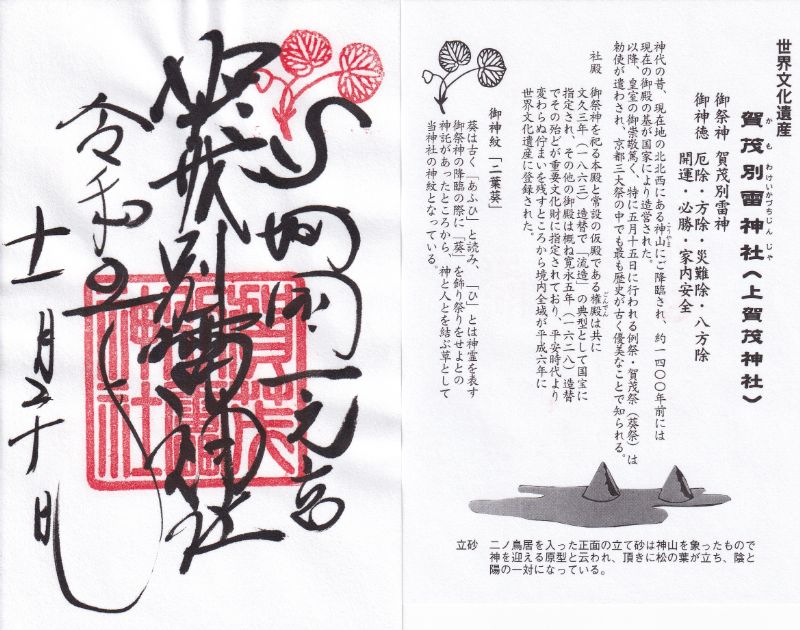 世界文化遺産
賀茂別雷神社(上賀茂神社)
かもわけいかづちじんじゃ
御祭神 賀茂別雷神
御神徳 厄除・方除・災難除・八方除
開運・必勝・家内安全
神代の昔、現在地の北北西にある神山にご降臨され、約一四〇〇年前には
こうやま
現在の御殿の基が国家により造営された。
以降、皇室の御崇敬篤く、特に五月十五日に行われる例祭・賀茂祭(葵祭)は
勅使が遣わされ、京都三大祭の中でも最も歴史が古く優美なことで知られる。
社殿
御祭神を祀る本殿と常設の仮殿である権殿は共に
ごんでん
文久三年(一八六三)造替で「流造」の典型として国宝に
指定され、その他の御殿は概ね寛永五年(一六二八)造替
でその殆どが重要文化財に指定されており、平安時代より
変わらぬ佇まいを残すところから境内全域が平成六年に
世界文化遺産に登録された。
御神紋「二葉葵」
葵は古く「あふひ」と読み、「ひ」とは神霊を表す
御祭神の降臨の際に「葵」を飾り祭りをせよとの
神託があったところから、神と人とを結ぶ草として
当神社の神紋となっている。
立砂 二ノ鳥居を入った正面の立て砂は神山を象ったもので
神を迎える原型と云われ、頂きに松の葉が立ち、陰と
陽の一対になっている。
山城国一之宮
賀茂別雷神社
賀茂
別雷
神社
令和五年
十一月二十日